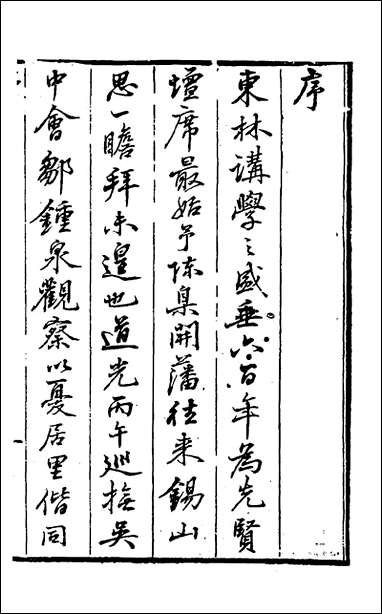 序
東林講學之盛垂六百年爲先賢
壇席最始予陳臬開藩往来錫山
思一瞻拜未遑也道光丙午巡撫吳
中會鄒鍾泉觀察以憂居里偕同